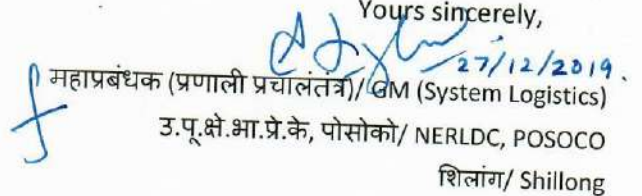 Yours sincerely,
27/12/2019.
महाप्रबंधक (प्रणाली प्रचालंतंत्र)/ GM (System Logistics)
उ.पू.क्षे.भा.प्रे.के, पोसोको/ NERLDC, POSOCO
शिलांग/ Shillong